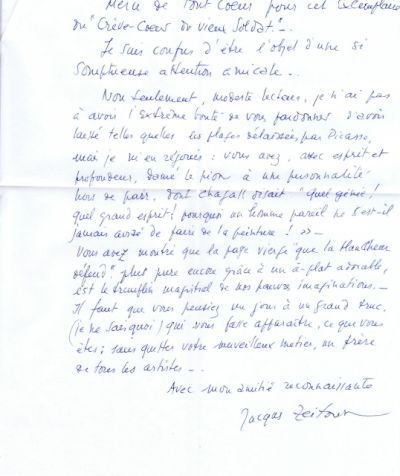 Merci de Tout Coeur pour cet Exemplaire
du "Crève-Coeur du vieux Soldat" _
Je suis confus d'être l'objet d'une si
Somptueuse attention amicale _
Non seulement, modeste lecteur, je n'ai pas
à avoir l'extrême bonté de vous pardonner d'avoir
laissé telles quelles les plages délaissées, par Picasso,
mais je m'en réjouis : vous avez, avec esprit et
profondeur, damé le pion à une personnalité
hors de pair, dont Chagall disait "quel génie !
quel grand esprit ! pourquoi un homme pareil ne s'est-il
jamais avisé de faire de la peinture ! » _
Vous avez montré que la page vierge "que la blancheur
défend" plus pure encore grâce à un à-plat adorable,
est le tremplin magistral de nos pauvres imaginations. _
Il faut que vous pensiez un jour à un grand truc
(je ne sais quoi) qui vous fasse apparaître, ce que vous
êtes ; sans quitter votre merveilleux métier, un frère
de tous les artistes _
Avec mon amitié reconnaissante
Jacques Zeitoun